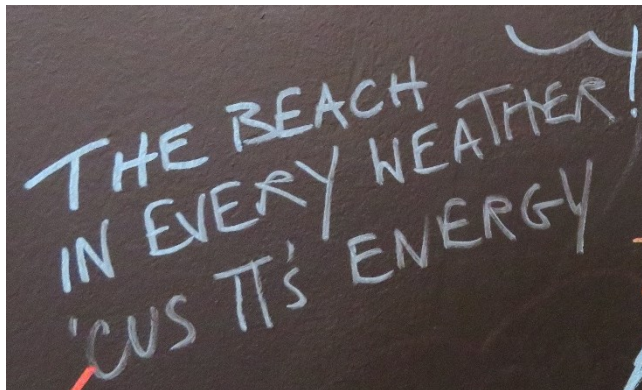 THE BEACH
IN EVERY WEATHER!
'CUS IT'S ENERGY